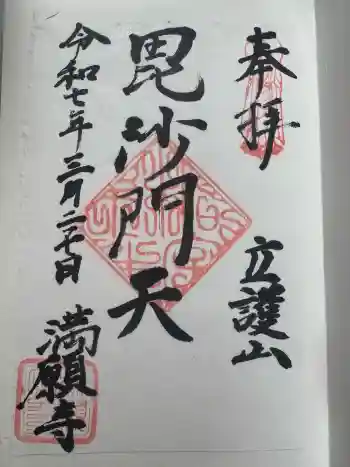 奉拝
立護山
毘沙門天
令和七年三月二十七日
満願寺